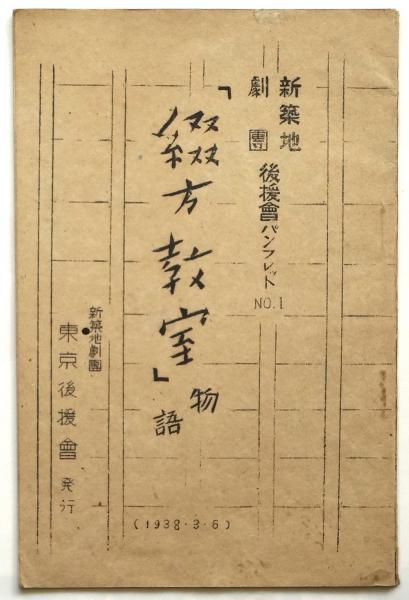 新築地
劇團
後援會パンフレット
NO.1
「綴方教室」物語
新築地劇團
東京後援會発行
(1938・3・6)